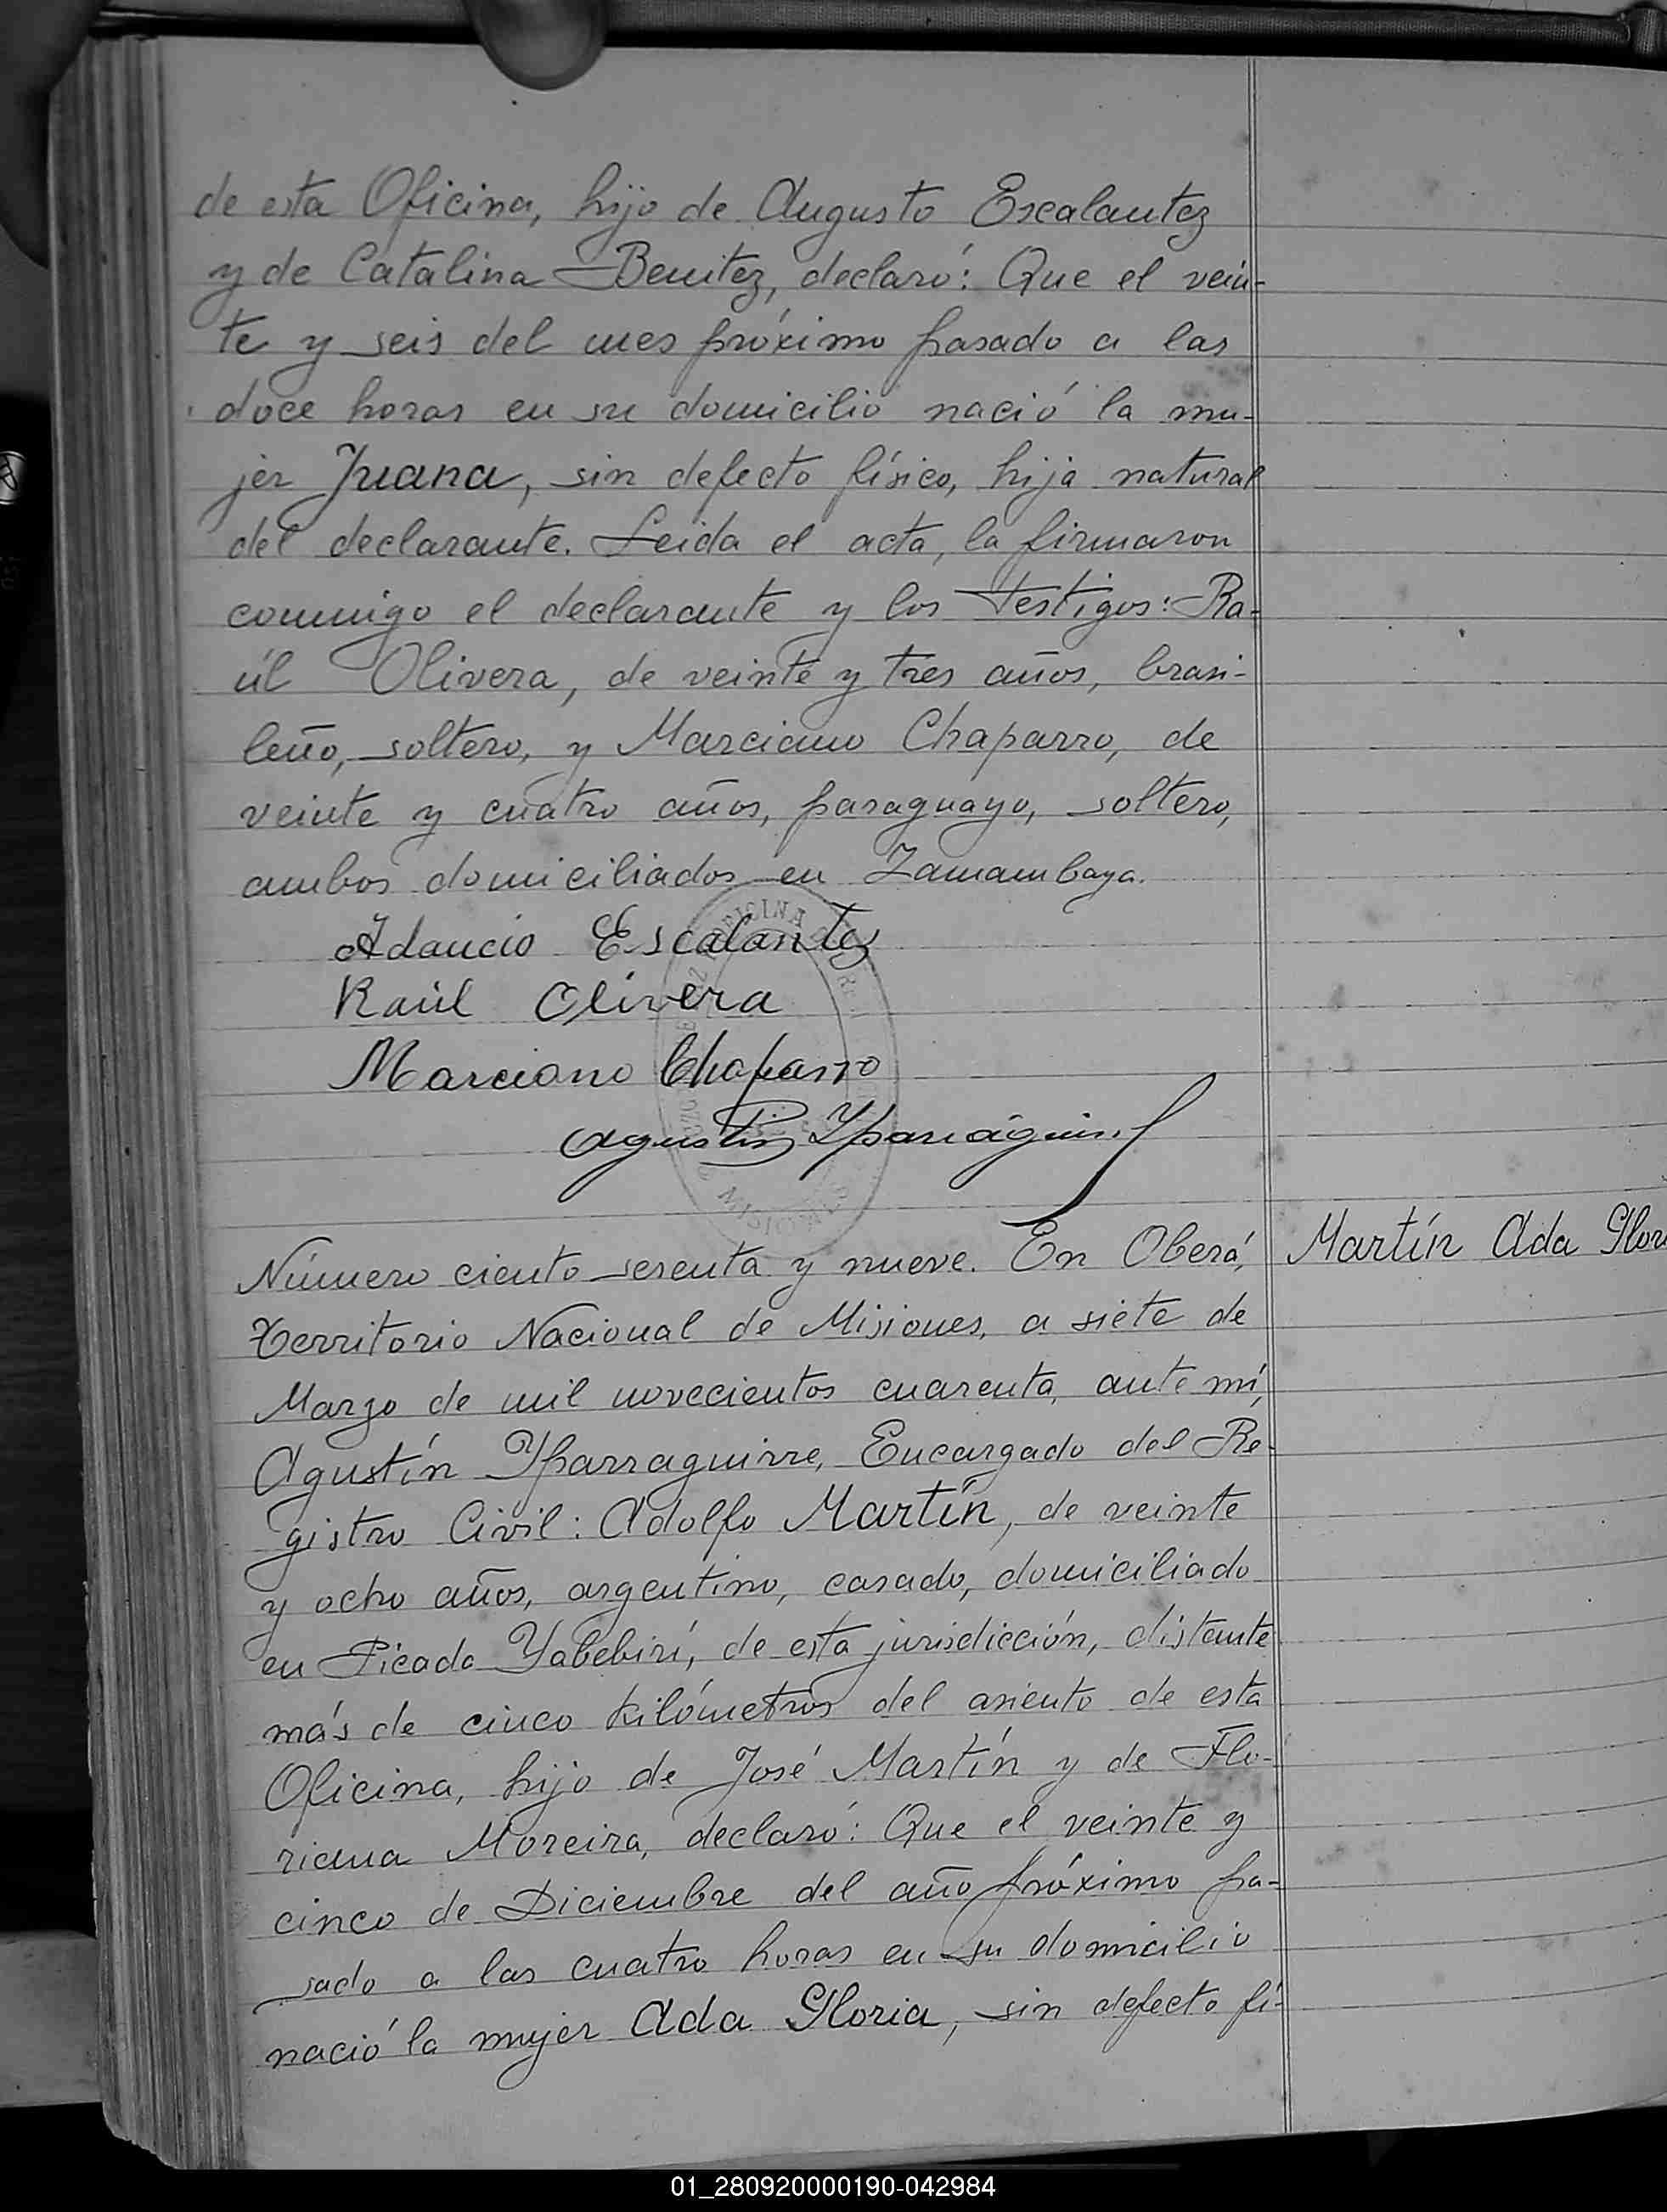 de esta Oficina, hijo de Augusto Escalantez
y de Catalina Benitez, declaró: Que el vein-
te y seis del mes próximo pasado a las
doce horas en su domicilio nació la mu-
jer Juana, sin defecto físico, hija natural
del declarante. Leida el acta, la firmaron
conmigo el declarante y los testigos: Ra-
úl Olivera, de veinte y tres años, brasi-
leño, soltero, y Marciano Chaparro, de
veinte y cuatro años, paraguayo, soltero,
ambos domiciliados en Zamambaya.
Adaucio Escalantez
Raúl Olivera
Marciano Chaparro
Agustín Yparraguirre
Número ciento sesenta y nueve. En Oberá,
Martín Ada Glori
Territorio Nacional de Misiones, a siete de
Marzo de mil novecientos cuarenta, ante mí,
Agustín Yparraguirre, Encargado del Re-
gistro Civil: Adolfo Martín, de veinte
y ocho años, argentino, casado, domiciliado
en Picada Yabebirí, de esta jurisdicción, distante
más de cinco kilómetros del asiento de esta
Oficina, hijo de José Martín y de Flo-
riana Moreira, declaró: Que el veinte y
cinco de Diciembre del año próximo pa-
sado a las cuatro horas en su domicilio
nació la mujer Ada Gloria, sin defecto fí-
01_280920000190-042984